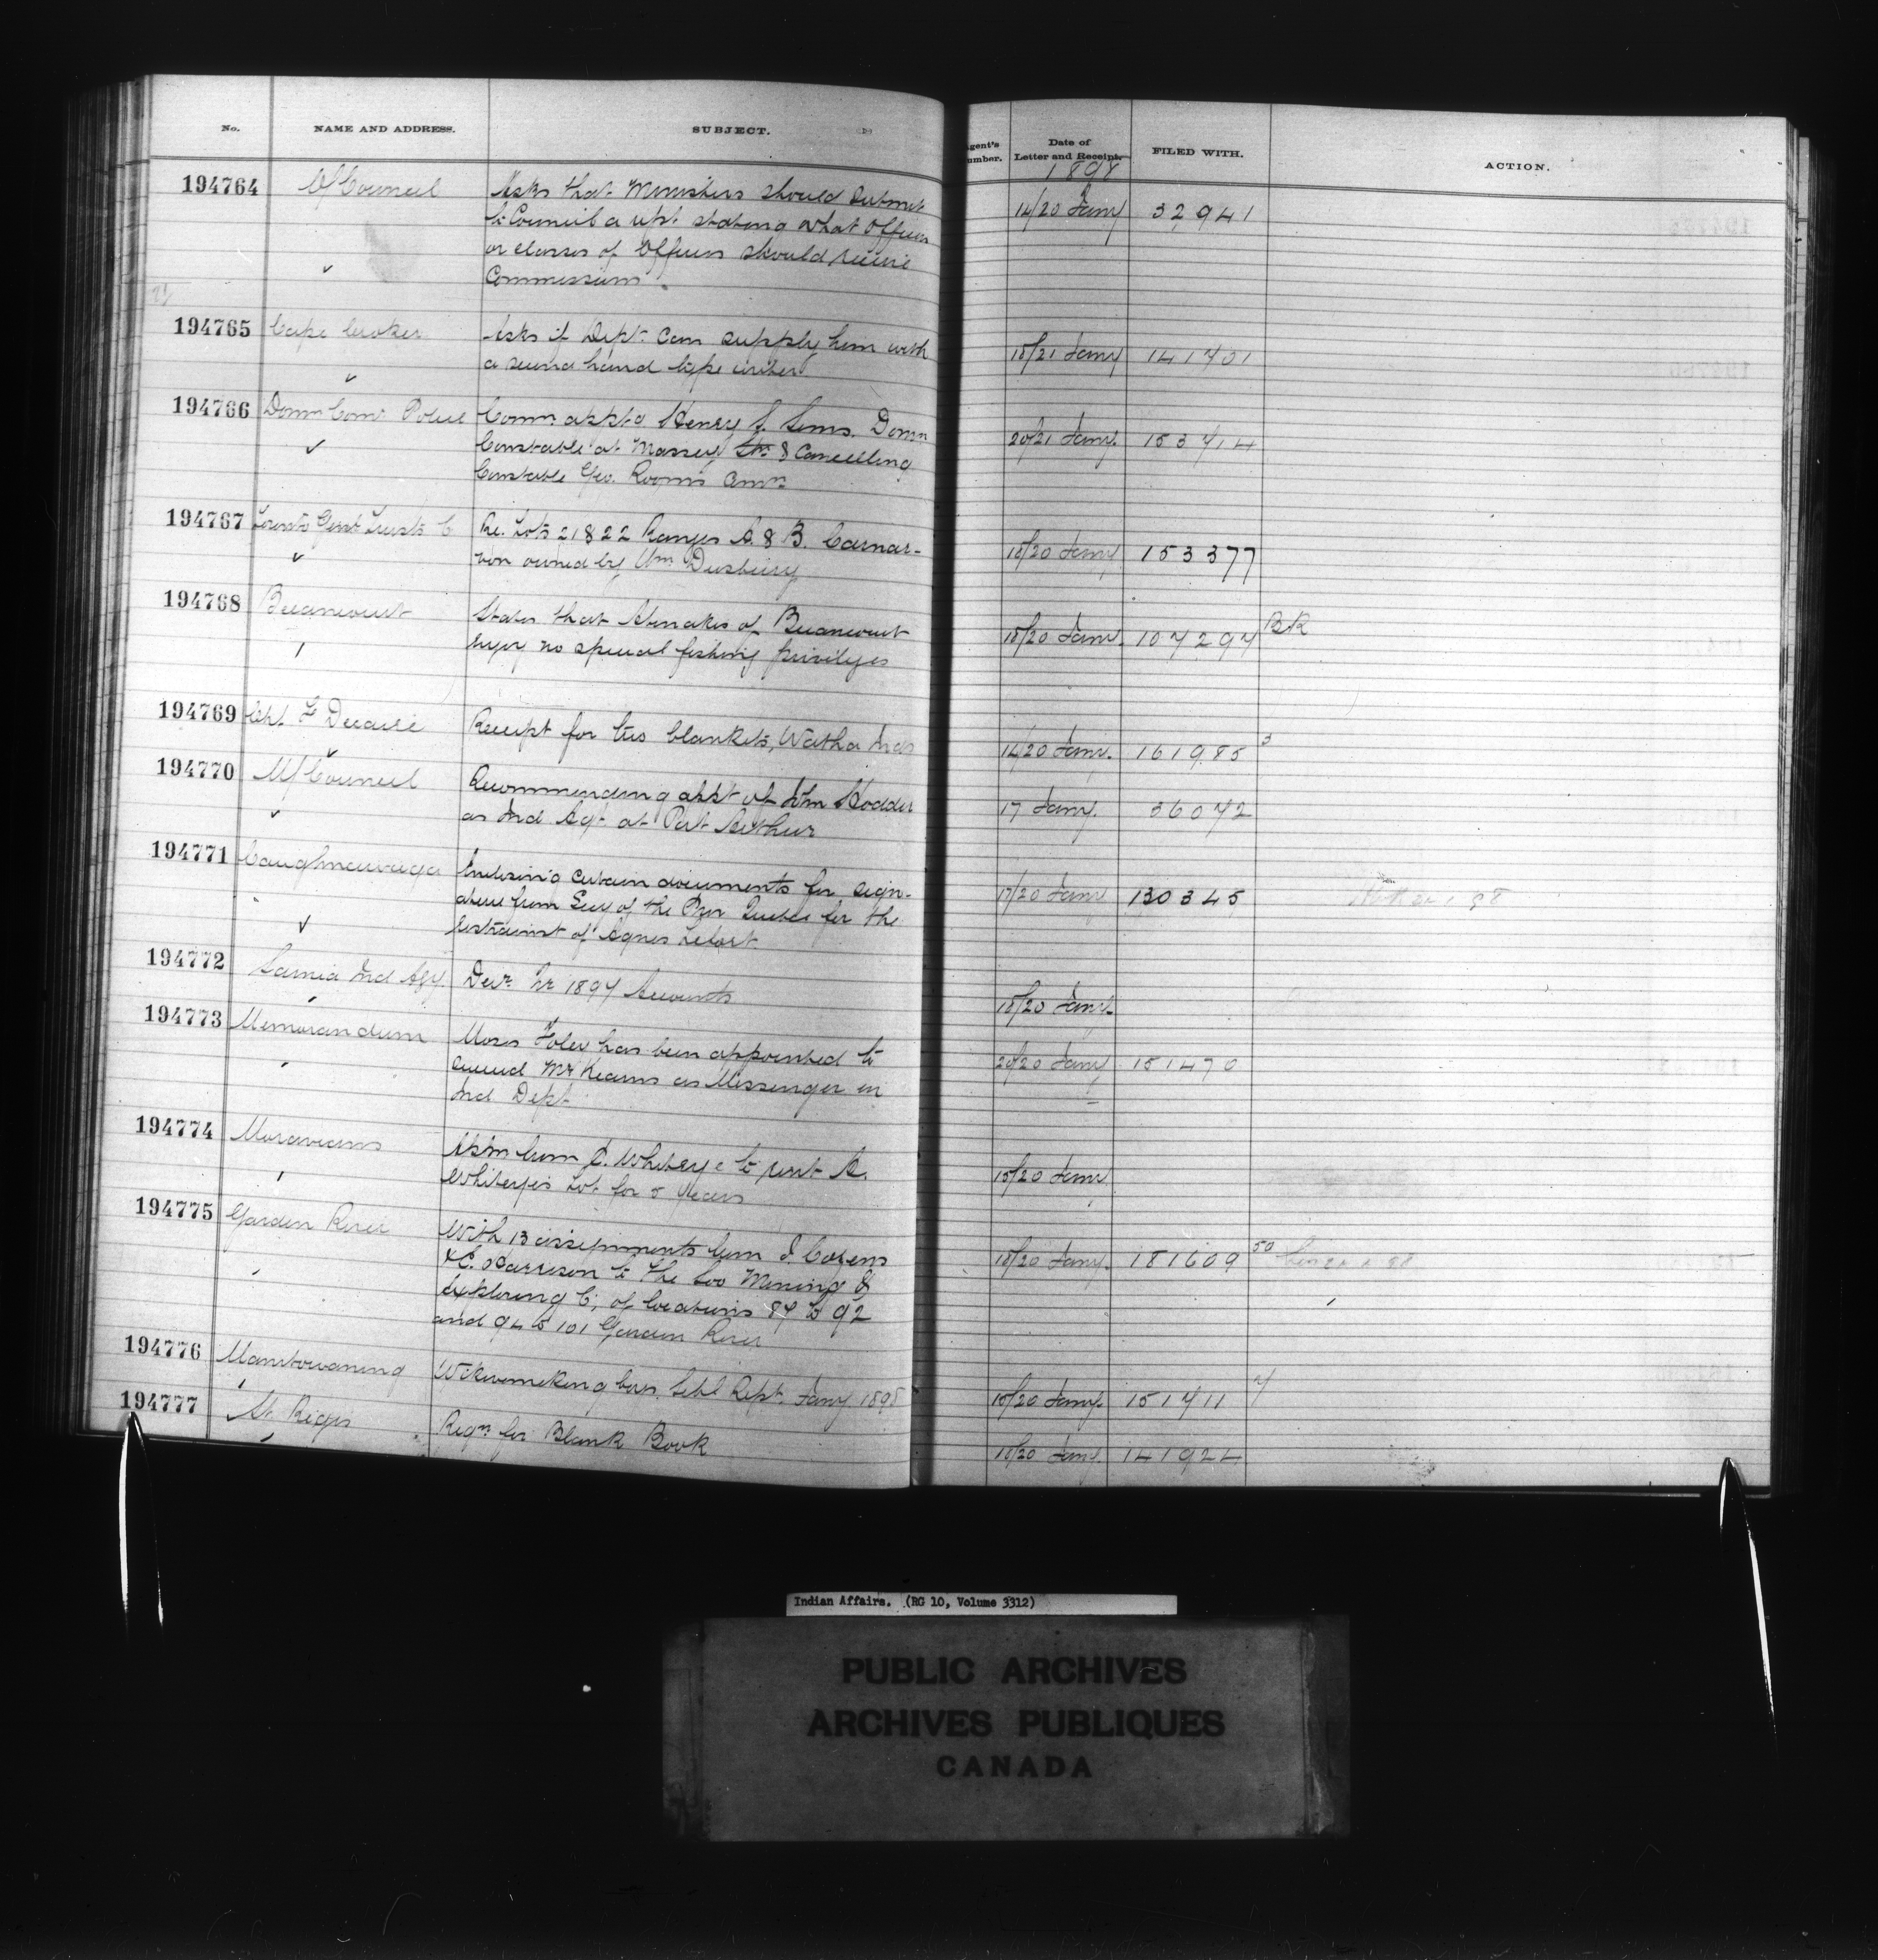 No. NAME AND ADDRESS. SUBJECT. Agent's Number. Date of Letter and Receipt. FILED WITH. ACTION.
1898
194764 O/Council Asks that Ministers should submit 14/20 Jany 32941
to Council a rept. stating what Officers
or classes of Officers should receive
Commissions
194765 Cape Croker Asks if Dept. can supply him with 18/21 Jany 141701
a second hand type writer
194766 Domn Comr Police Comn appt'g Henry J. Sims. Domn 20/21 Jany. 153414
Constable at Massey Stn & Cancelling
Constable Geo. Room's Comn
194767 Toronto Genl Trusts Co Re. Lots 21 & 22 Ranges A. & B. Carnar- 18/20 Jany 153377
von owned by Wm Dusbury
194768 Becancourt States that Abenakis of Becancourt 18/20 Jany. 107297 BK
enjoy no special fishing privileges
194769 Receipt for two blankets, Watha Inds 14/20 Jany. 161985 3
194770 O/Council Recommending appt of John Hodder 17 Jany. 36072
as Ind Agt. at Port Arthur
194771 Caughnawaga Enclosing certain documents for sign- 17/20 Jany 130345
ature from Secy of the Prov Quebec for the
of Agnes Lefort
194772 Sarnia Ind Agy. Decr Qr 1897 Accounts 18/20 Jany.
194773 Memorandum Moses Foley has been appointed to 20/20 Jany 151470
succeed Mr Kearns as Messenger in
Ind Dept
194774 Moravians Appn from J. Whiteye to rent A. 18/20 Jany
Whiteye's Lot for 5 years
194775 Garden River With 13 assignments from J. Cozens 18/20 Jany. 181609 50
& C. Harrison to the Soo Mining &
Exploring Co, of locations 87 to 92
and 94 to 101 Garden River
194776 Manitowaning Wikwemikong Schl Rept. Jany 1898 18/20 Jany. 151711 7
194777 St. Regis Reqn for Blank Book 18/20 Jany. 141924
Indian Affairs. (RG 10, Volume 3312)
PUBLIC ARCHIVES
ARCHIVES PUBLIQUES
CANADA